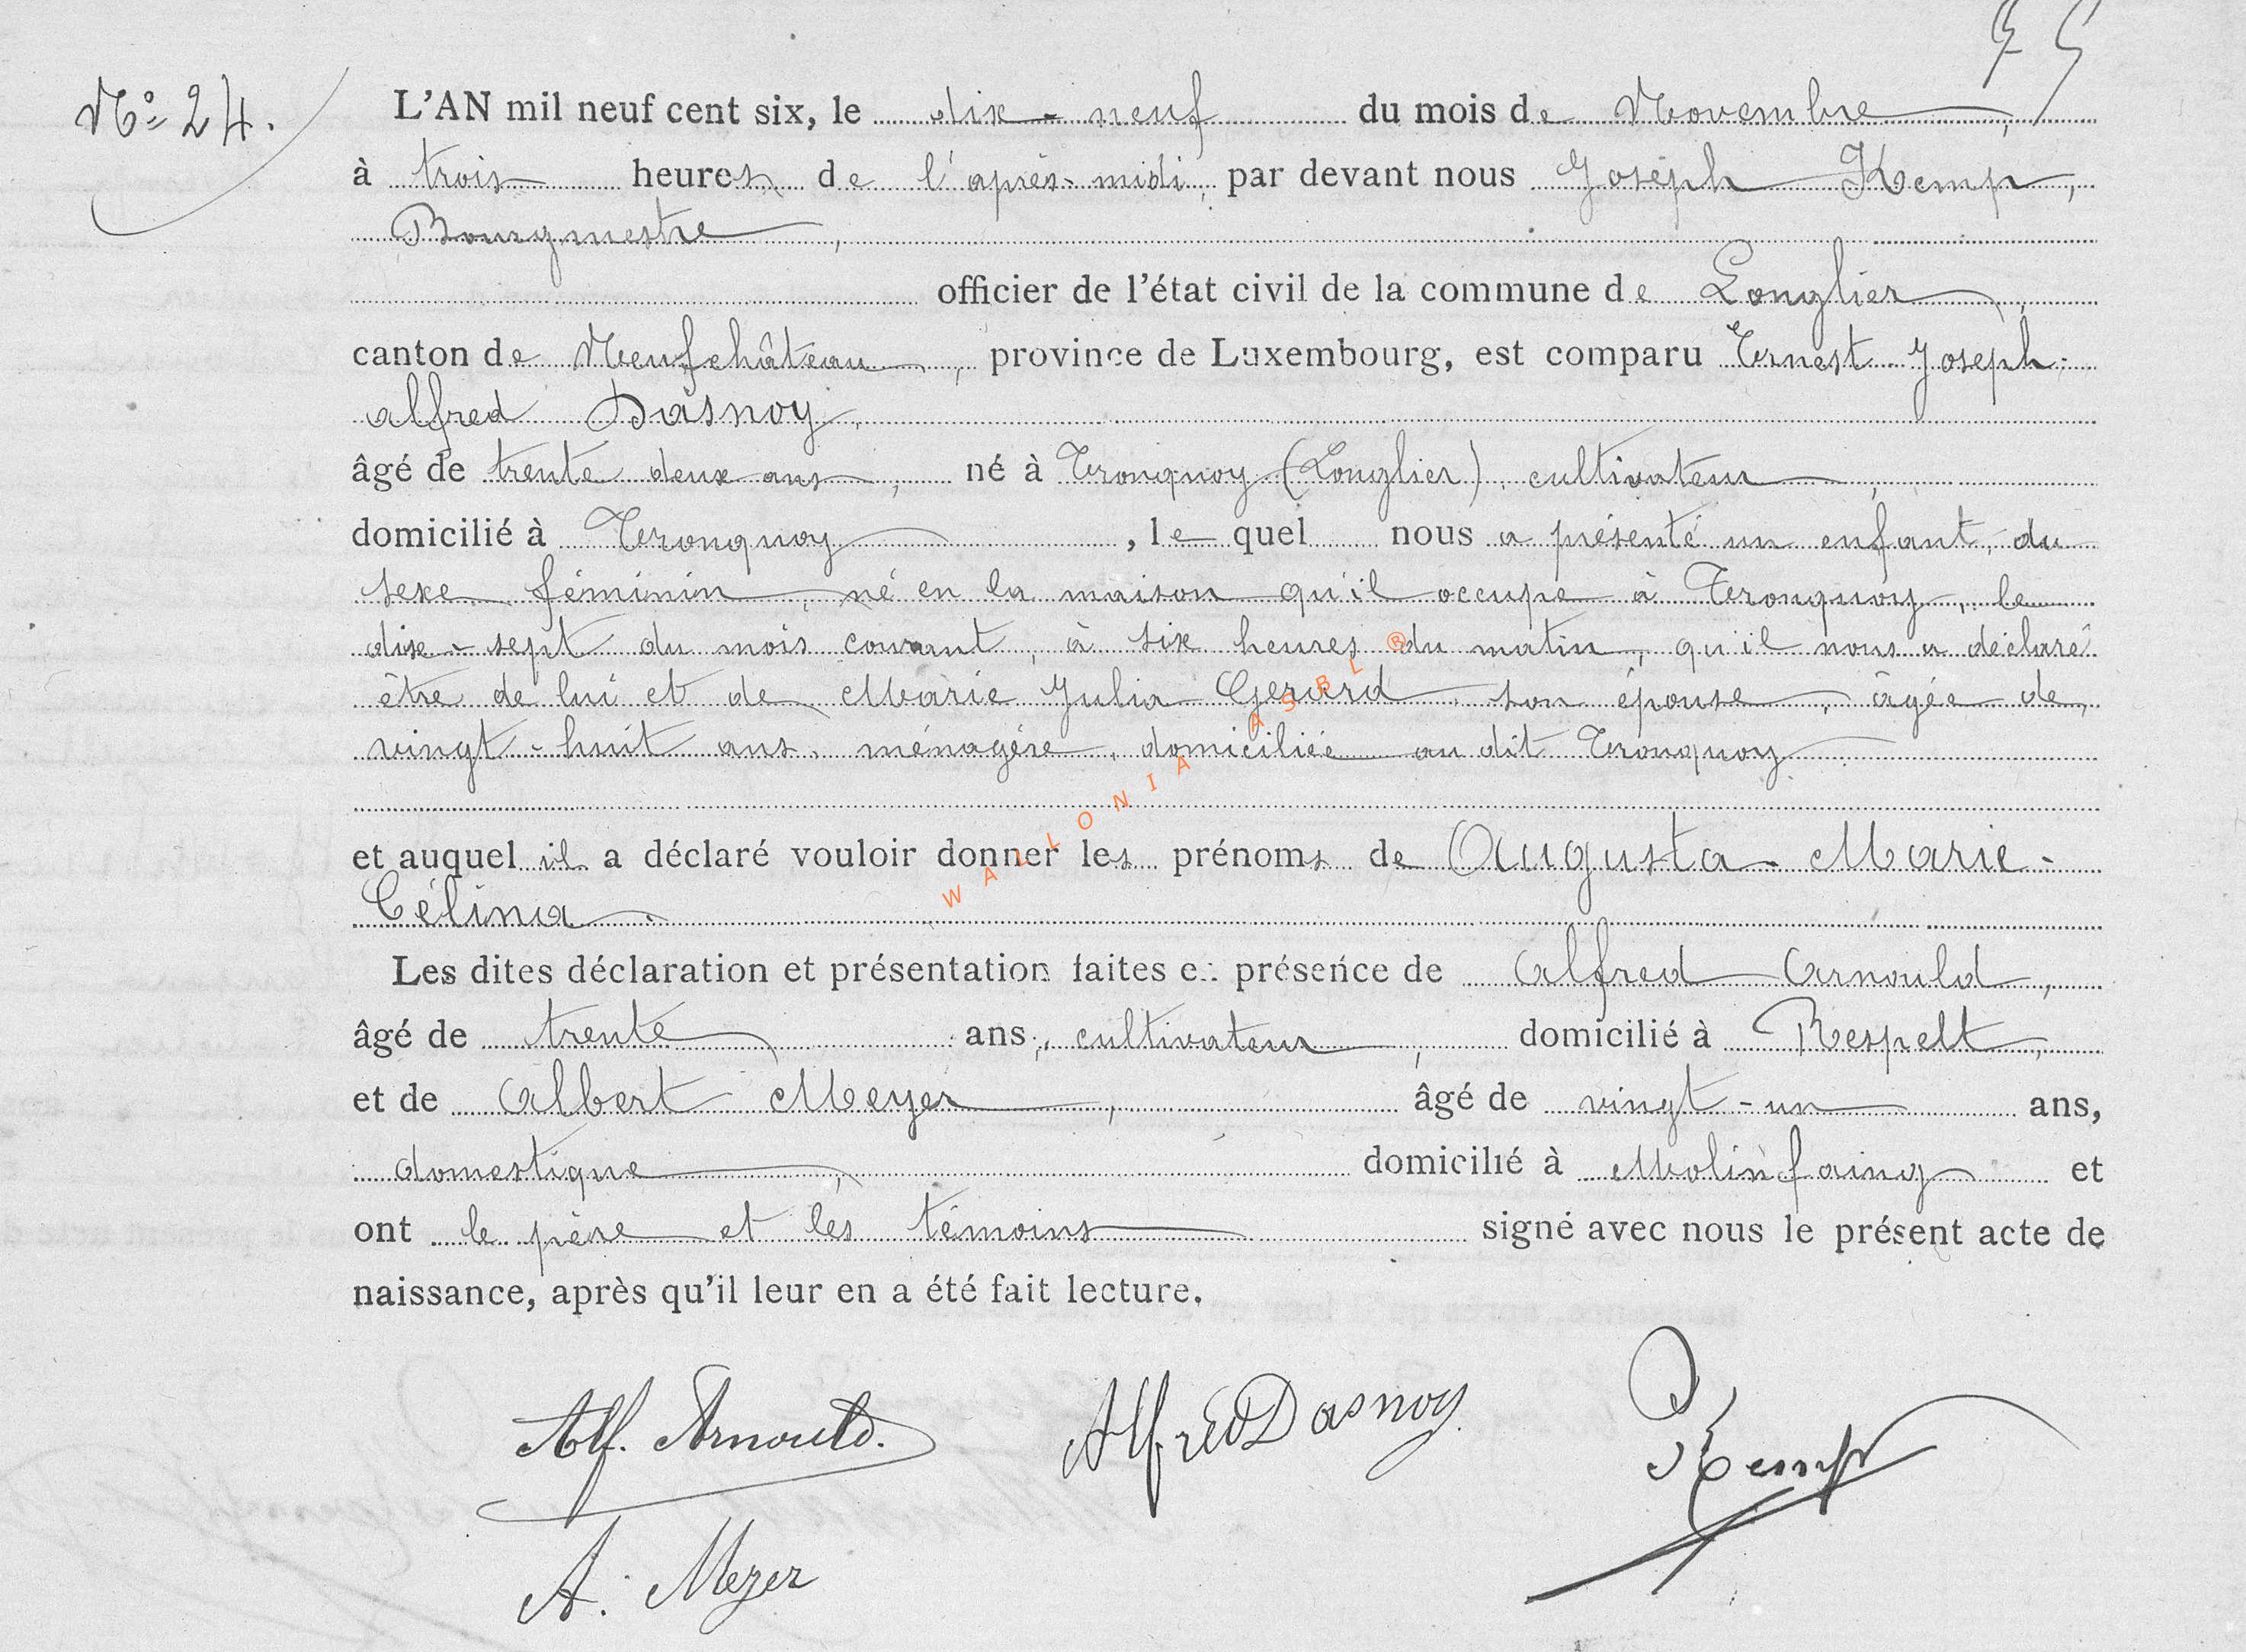 Nº 24.
L'AN mil neuf cent six, le dix-neuf du mois de Novembre,
à trois heures de l'après-midi, par devant nous Joseph Kemp,
Bourgmestre,
officier de l'état civil de la commune de Longlier,
canton de Neufchâteau, province de Luxembourg, est comparu Ernest-Joseph-
alfred Dasnoy,
âgé de trente deux ans, né à Tronquoy (Longlier), cultivateur,
domicilié à Tronquoy, lequel nous a présenté un enfant, du
sexe féminin, né en la maison qu'il occupe à Tronquoy, le
dix-sept du mois courant, à six heures du matin, qu'il nous a déclaré
être de lui et de Marie Julia Gerard, son épouse, âgée de
vingt-huit ans, ménagère, domiciliée au dit Tronquoy
et auquel il a déclaré vouloir donner les prénoms de Augusta-Marie-
Célina.
Les dites déclaration et présentation faites en présence de Alfred Arnould,
âgé de trente ans, cultivateur, domicilié à Respelt,
et de Albert Meyer, âgé de vingt-un ans,
domestique, domicilié à Molinfaing et
ont le père et les témoins signé avec nous le présent acte de
naissance, après qu'il leur en a été fait lecture.
Alf. Arnould. Alfred Dasnoy. Kemp
A. Meyer
WALLONIA ASBL ®